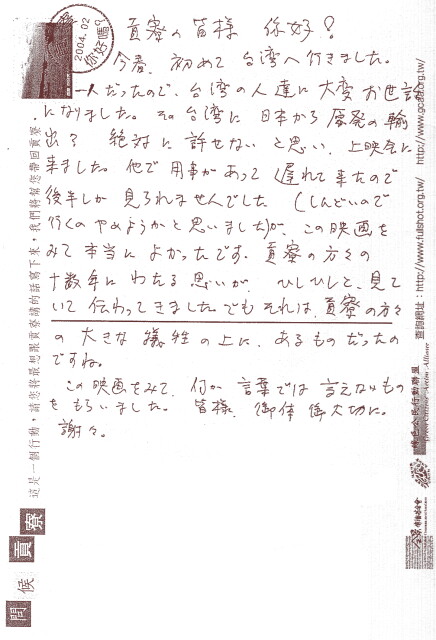 貢寮の皆様 你好!
今春、初めて台湾へ行きました。
一人だったので、台湾の人達に大変お世話
になりました。その台湾に日本から原発の輸
出? 絶対に許せないと思い、上映会に
来ました。他で用事があって遅れて来たので
後半しか見られませんでした (しんどいので
行くのやめようかと思いました)が、この映画を
みて本当によかったです。貢寮の方々の
十数年にわたる思いが、ひしひしと、見て
いて伝わってきました。でもそれは、貢寮の方々
の大きな犠牲の上に、あるものだったの
ですね。
この映画をみて、何か言葉では言えないもの
をもらいました。皆様、御体御大切に。
謝々。
2004.02
你好嗎?
這是一個行動,請您將最想跟貢寮講的話寫下來,我們將幫您帶回貢寮
問候貢寮
查詢網址:http://www.fullshot.org.tw/ http://www.gcaa.org.tw/
綠色公民行動聯盟
Green Citizens' Action Alliance